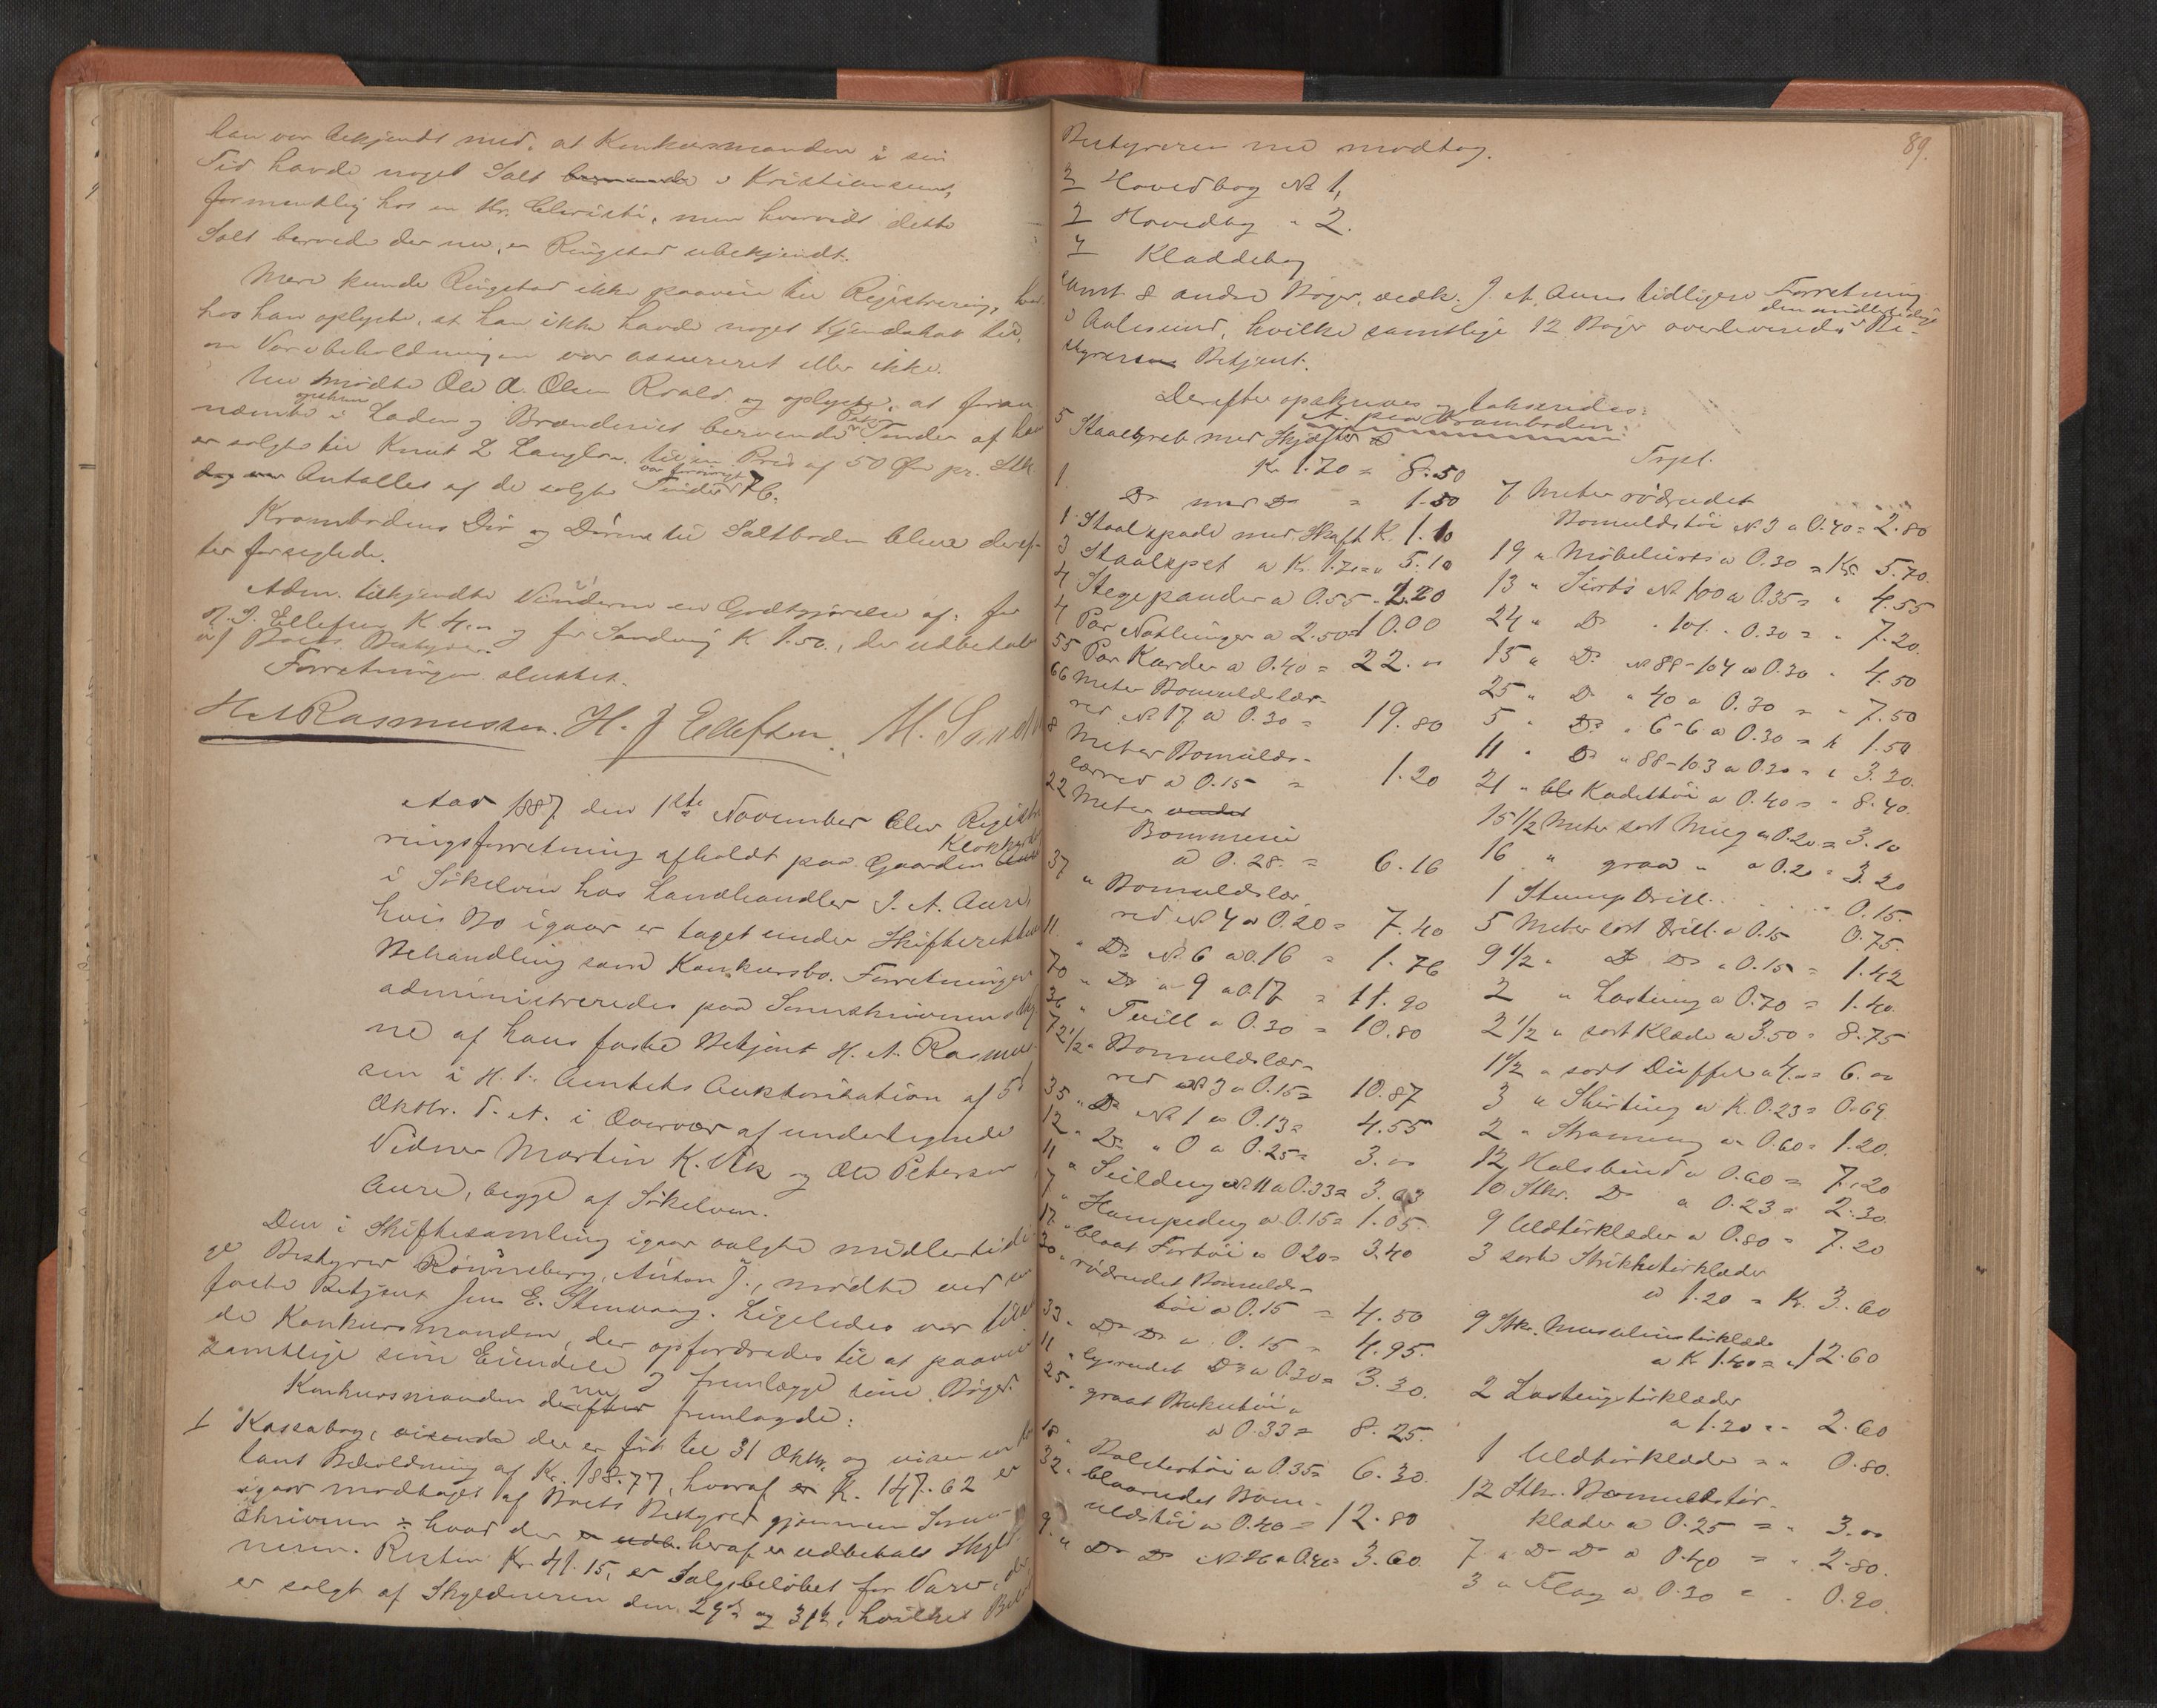 han var bekjendt med, at Konkursmanden i sin
Tid havde noget Salt beroende i Kristiansund,
formentlig hos en Hr. Christie, men hvorvidt dette
Salt beroede der nu, er Ringstad ubekjendt.
Mere kunde Ringstad ikke paavise til Registrering,
hos han oplyste, at han ikke havde noget Kjendskab til,
om Varebeholdningen var assureret eller ikke.
Nu mødte Ole A. Olsen Roald og oplyste, at foran
nævnte i Laden og Brænderiet beroende Tønder af ham
er solgte til Knut L Langlo, til en Pris af 50 Øre pr. Stk.
Antallet af de solgte Tønder var 76.
Krambodens Dør og Dørene til Saltboden bleve deref-
ter forseglede.
Adm. tilkjendte Vidnerne en Godtgjørelse af: for
H. J. Ellefsen K. 4.00 og for Sandvig K 1.50, der udbetales
af Boets Bestyrer.
Forretningen sluttet.
H. A Rasmussen. H. J Ellefsen. M. Sandvi
Aar 1887 den 1ste November blev Registre-
ringsforretning afholdt paa Gaarden Aure
i Søkelven hos Landhandler J. A. Aure,
hvis Bo igaar er taget under Skifterettens
Behandling som Konkursbo. Forretningen
administreredes paa Sorenskriverens Veg-
ne af hans faste Betjent H. A. Rasmus-
sen i H. t. Amtets Auktorisation af 5
Oktbr. d. A. i Overvær af undertegnede
Vidner Martin K. Vik og Ole Petersen
Aure, begge af Søkelven.
Den i Skiftesamling igaar valgte midlertidi-
ge Bestyrer Rønneberg, Anton J., mødte ved sin
faste Betjent Jens E. Stenvaag. Ligeledes var tilste-
de Konkursmanden, der opfordredes til at paavise
samtlige sine Eiendele og fremlægge sine Bøger.
Konkursmanden derefter nu fremlagde:
1 Kassabog, visende der er ført til 31 Oktbr. og viser en kon-
tant Beholdning af Kr. 188.77, hvoraf er K. 147.62 er
igaar modtaget af Boets Bestyrer gjennem Soren-
skriveren, hvad der er udb. heraf er udbetalt Skyld-
neren. Resten Kr. 41.15, er Salgsbeløbet for Varer, der
er solgt af Skyldneren den 29de og 31te, hvilket Beløb
89.
Bestyreren nu modtog.
2 Hovedbog № 1,
3 Hovedbog " 2.
4 Kladdebog
samt 8 andre Bøger, vedk. J. A. Aures tidligere Forretning
i Aalesund, hvilke samtlige 12 Bøger overleveredes den midlertidige Be-
styreren Betjent.
Derefter opskreves og taxeredes:
A. paa Kramboden.
5 Staalgreb med Skjæfter a
K. 1.70 = 8.50
1 Do med Do = 1.50
1 Staalspade med Skaft K. 1.10
3 Staalspet a K. 1.70 = " 5.10
4 Stegepander a 0.55 - 2.20
4 Par Notlinger a 2.50 = 10.00
55 Par Karder a 0.40 = 22.00
66 Meter Bomuldslær-
red № 17 a 0.30 = 19.80
8 Meter Bomulds-
lærred a 0.15 = 1.20
22 Meter
Bommesie
a 0.28. = 6.16
37 " Bomuldslær-
red № 4 a 0.20 = 7.40
11 " Do № 6 a 0.16 = 1.76
70 " Do " 9 a 0.17 = 11.90
36 " Tvill a 0.30 = 10.80
72 1/2 " Bomuldslær-
red № 3 a 0.15 = 10.87
35 " Do № 1 a 0.13 = 4.55
12 " Do " 0 a 0.25 = 3.00
11 " Seildug № 11 a 0.33 = 3.63
7 " Hampedug a 0.15 = 1.05.
17 " blaat Fortøi a 0.20 = 3.40
30 " rødrudet Bomulds-
tøi a 0.15 = 4.50
33 " Do Do a 0.15 = 4.95.
11 " lysrudet Do a 0.30 = 3.30.
25 " graat Buksetøi
a 0.33 = 8.25.
18 " Bolstertøi a 0.35 = 6.30.
32 " blaarudet Bom-
uldstøi a 0.40 = 12.80
9 " Do Do № 26 a 0.40 = 3.60.
Trpt.
7 Meter rødrudet
Bomuldstøi № 3 a 0.40 = 2.80
19 " Møbelsirts a 0.30 = Kr. 5.70.
13 " Sirts № 100 a 0.35 = " 4.55
24 " Do " 101 " 0.30 = " 7.20.
15 " Do № 88-104 a 0.30 " 4.50
25 " Do " 40 a 0.30 = " 7.50
5 " Do " 6-6 a 0.30 = " 1.50
11 " Do " 88-103 a 0.30 = " 3.30.
21 " Kadettøi a 0.40 = " 8.40.
15 1/2 Meter sort Mieg a 0.20 = 3.10
16 " graa " a 0.20 = 3.20
1 Stump Drill . . . . 0.15.
5 Meter sort Drill a 0.15 0.75.
9 1/2 " Do Do a 0.15 = 1.42
2 " Lasting a 0.70 = 1.40.
2 1/2 " sort Klæde a 3.50 = 8.75
1 1/2 " sort Düffel a 4.00 = 6.00
3 " Shirting a K. 0.23 = 0.69.
2 " Stramey a 0.60 = 1.20.
12 Halsbind a 0.60 = 7.20
10 Stkr. Do a 0.23 = 2.30.
9 Uldtørklæder a 0.80 = 7.20
3 sorte Strikketørklæder
a 1.20 = K. 3.60
9 Stkr. Musselinstørklæde
a K 1.40 = " 12.60
2 Lastingstørklæder
a 1.30 = " 2.60
1 Uldtørklæde = " 0.80.
12 Stkr. Bomuldstør-
klæder a 0.25 = " 3.00
7 " Do Do a 0.40 = " 2.80.
3 " Flag a 0.30 = " 0.90.